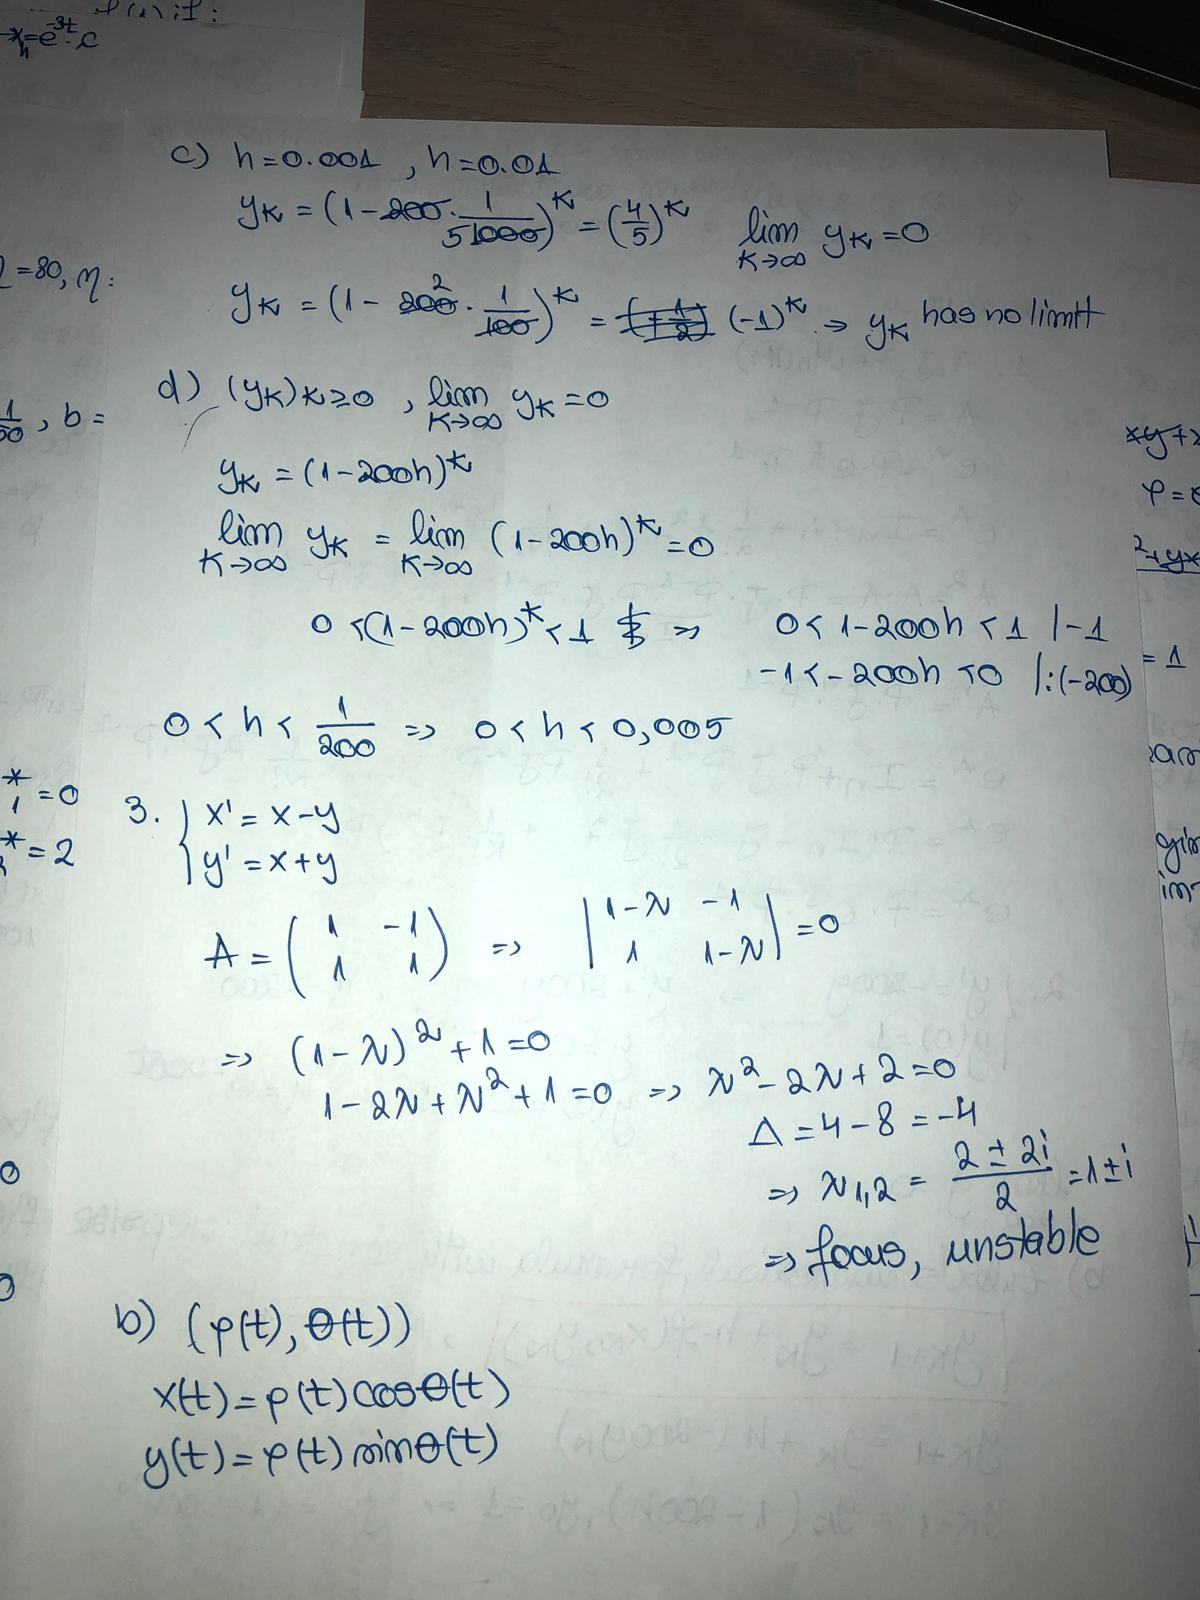 x_h = e^{-3t} · c
c) h=0.001 , h=0.01
y_k = (1-200·1/5 1000)^k = (4/5)^k lim k→∞ y_k=0
η=80, η:
y_k = (1- 200 2 · 1/100)^k = (-1/2) (-1)^k ⇒ y_k has no limit
d) (y_k)k≥0 , lim k→∞ y_k=0
, b=
y_k = (1-200h)^k
lim k→∞ y_k = lim k→∞ (1-200h)^k = 0
0 < (1-200h)^k < 1 ⇒ 0 < 1-200h < 1 |-1
-1 < -200h < 0 |:(-200)
= 1
0 < h < 1/200 ⇒ 0 < h < 0,005
* 1 = 0
* = 2
3. { x' = x-y
y' = x+y
A = ( 1 -1
1 1 ) ⇒ | 1-λ -1
1 1-λ | = 0
⇒ (1-λ)^2 + 1 = 0
1-2λ+λ^2+1=0 ⇒ λ^2-2λ+2=0
Δ = 4-8 = -4
⇒ λ1,2 = 2 ± 2i / 2 = 1±i
⇒ focus, unstable
b) (ρ(t), θ(t))
x(t) = ρ(t) cosθ(t)
y(t) = ρ(t) sinθ(t)